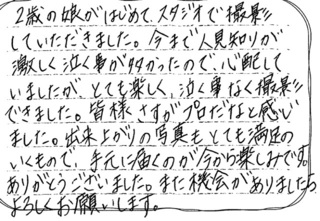 2歳の娘がはじめて、スタジオで撮影
していただきました。今まで人見知りが
激しく泣く事が多かったので、心配して
いましたが、とても楽しく、泣く事なく撮影
できました。皆様さすがプロだなと感じ
ました。出来上がりの写真もとても満足の
いくもので、手元に届くのが今から楽しみです。
ありがとうございました。また機会がありましたら
よろしくお願いします。